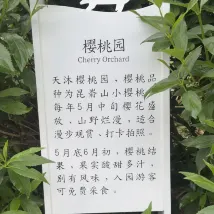 樱桃园
Cherry Orchard
天沐樱桃园，樱桃品
种为昆嵛山小樱桃，
每年5月中旬樱花盛
放，山野烂漫，适合
漫步观赏、打卡拍照。
5月底6月初，樱桃结
果。果实酸甜多汁，
别有风味，入园游客
可免费采食。